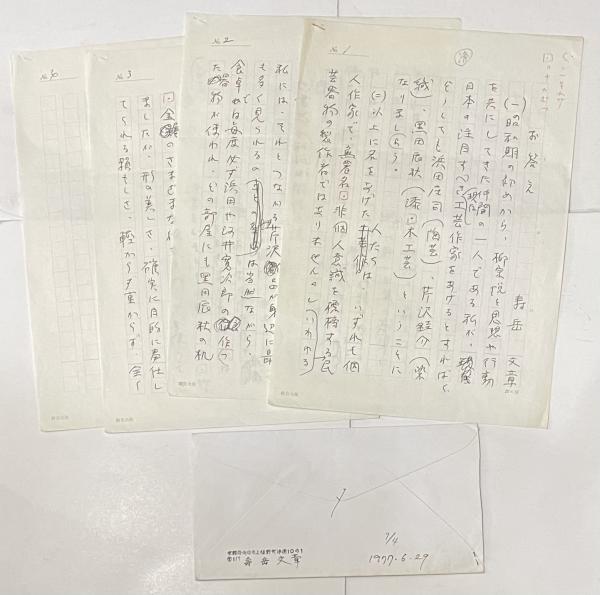 No. 1
済
お答え
寿岳 文章
(一)昭和期の初めから、柳宗悦と思想や行動
を共にしてきた仲間の一人である私が、現在
日本の注目すべき工芸作家をあげるとすれば、
どうしても浜田庄司(陶芸)、芹沢銈介(染
織)、黒田辰秋(漆・木工芸)ということに
なりましょう。
(二)以上に名をあげた人たちは、いずれも個
人作家で、無署名・非個人意識を優揚する民
芸器物の製作者ではありません。しいわれる
No. 2
私には、それとつながる芹沢 品が身辺に最
も多く見られるの は当然ながら、
食卓では毎度必ず浜田や河井寛次郎の作っ
た器物が使われ、どの部屋にも黒田辰秋の机
No. 3
のさまざまなど
ましたが、形の美しさ、確実に目的に奉仕し
てくれる頼もしさ、軽からず重からず、全く
No.
7/4
1977.6.29
寿岳文章